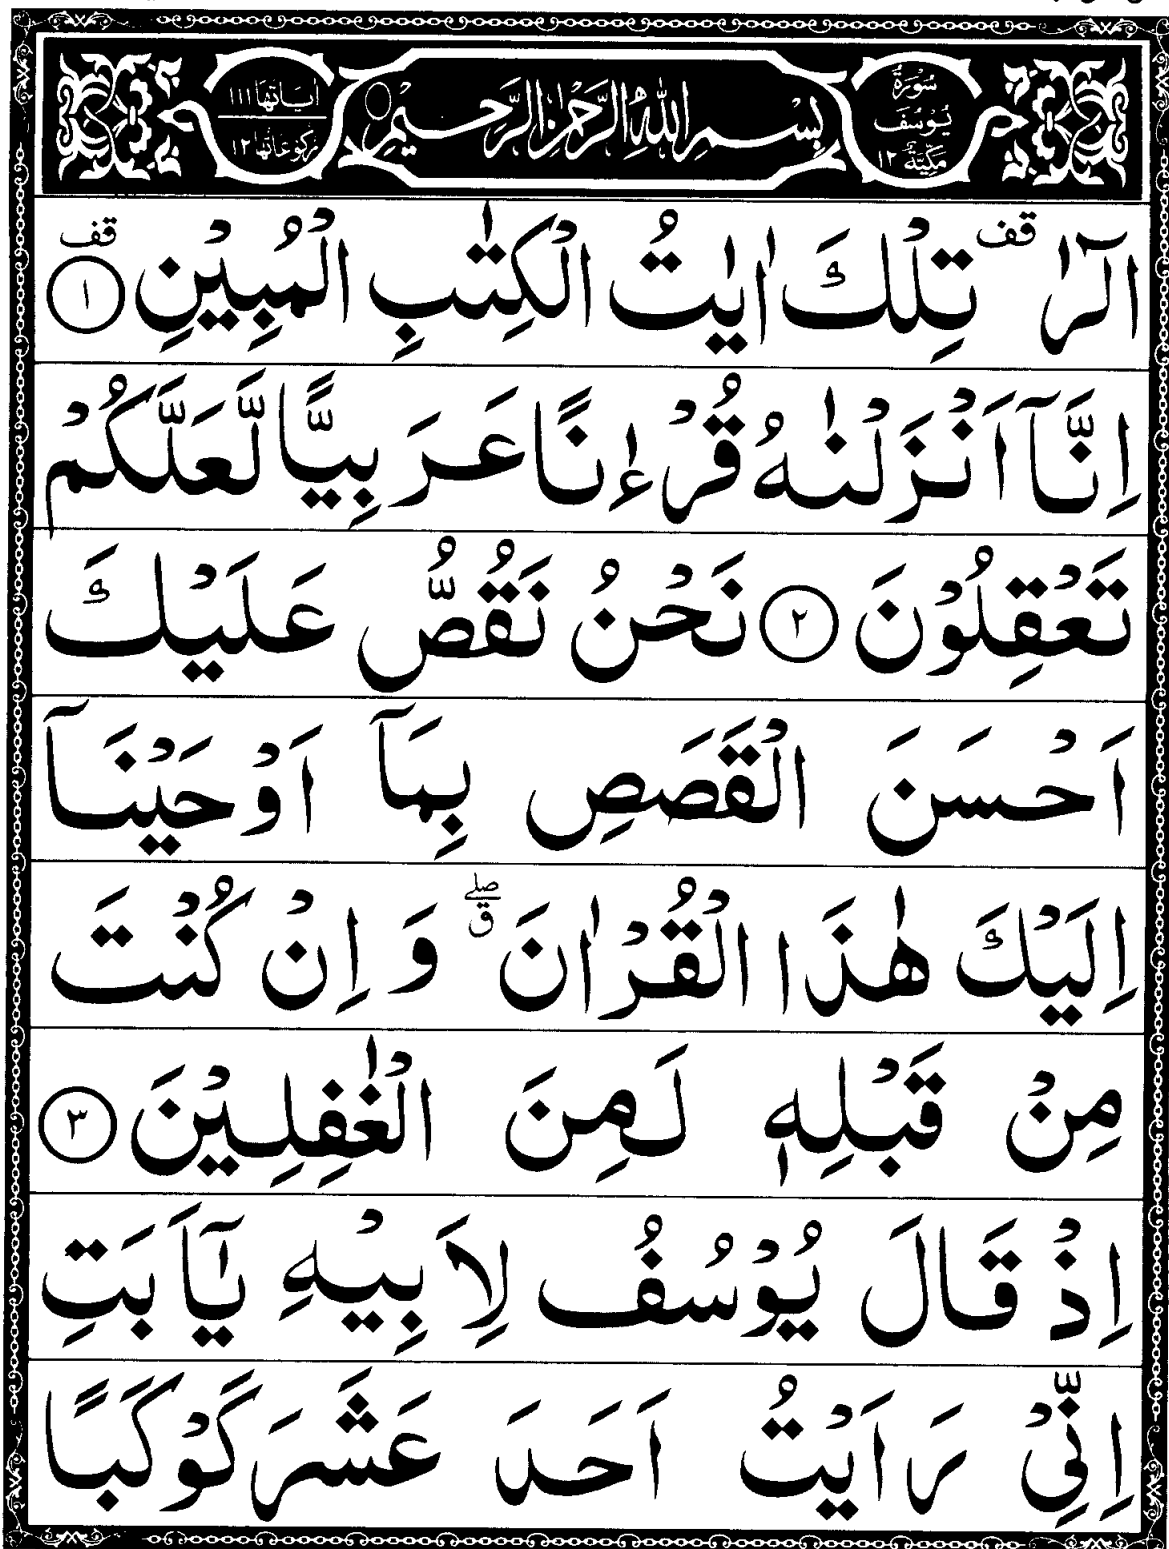 سُوْرَةُ
يُوْسُفَ
مَكِّيَّةٌ ١٢
بِسْمِ اللّٰهِ الرَّحْمٰنِ الرَّحِيْمِ
اٰيَاتُهَا ١١١
رُكُوْعَاتُهَا ١٢
الٓرٰ ۗقف تِلْكَ اٰيٰتُ الْكِتٰبِ الْمُبِيْنِ ١ قف
اِنَّاۤ اَنْزَلْنٰهُ قُرْءٰنًا عَرَبِيًّا لَّعَلَّكُمْ
تَعْقِلُوْنَ ٢ نَحْنُ نَقُصُّ عَلَيْكَ
اَحْسَنَ الْقَصَصِ بِمَاۤ اَوْحَيْنَاۤ
اِلَيْكَ هٰذَا الْقُرْاٰنَ ۖق وَ اِنْ كُنْتَ
مِنْ قَبْلِهٖ لَمِنَ الْغٰفِلِيْنَ ٣
اِذْ قَالَ يُوْسُفُ لِاَبِيْهِ يٰۤاَبَتِ
اِنِّيْ رَاَيْتُ اَحَدَ عَشَرَ كَوْكَبًا